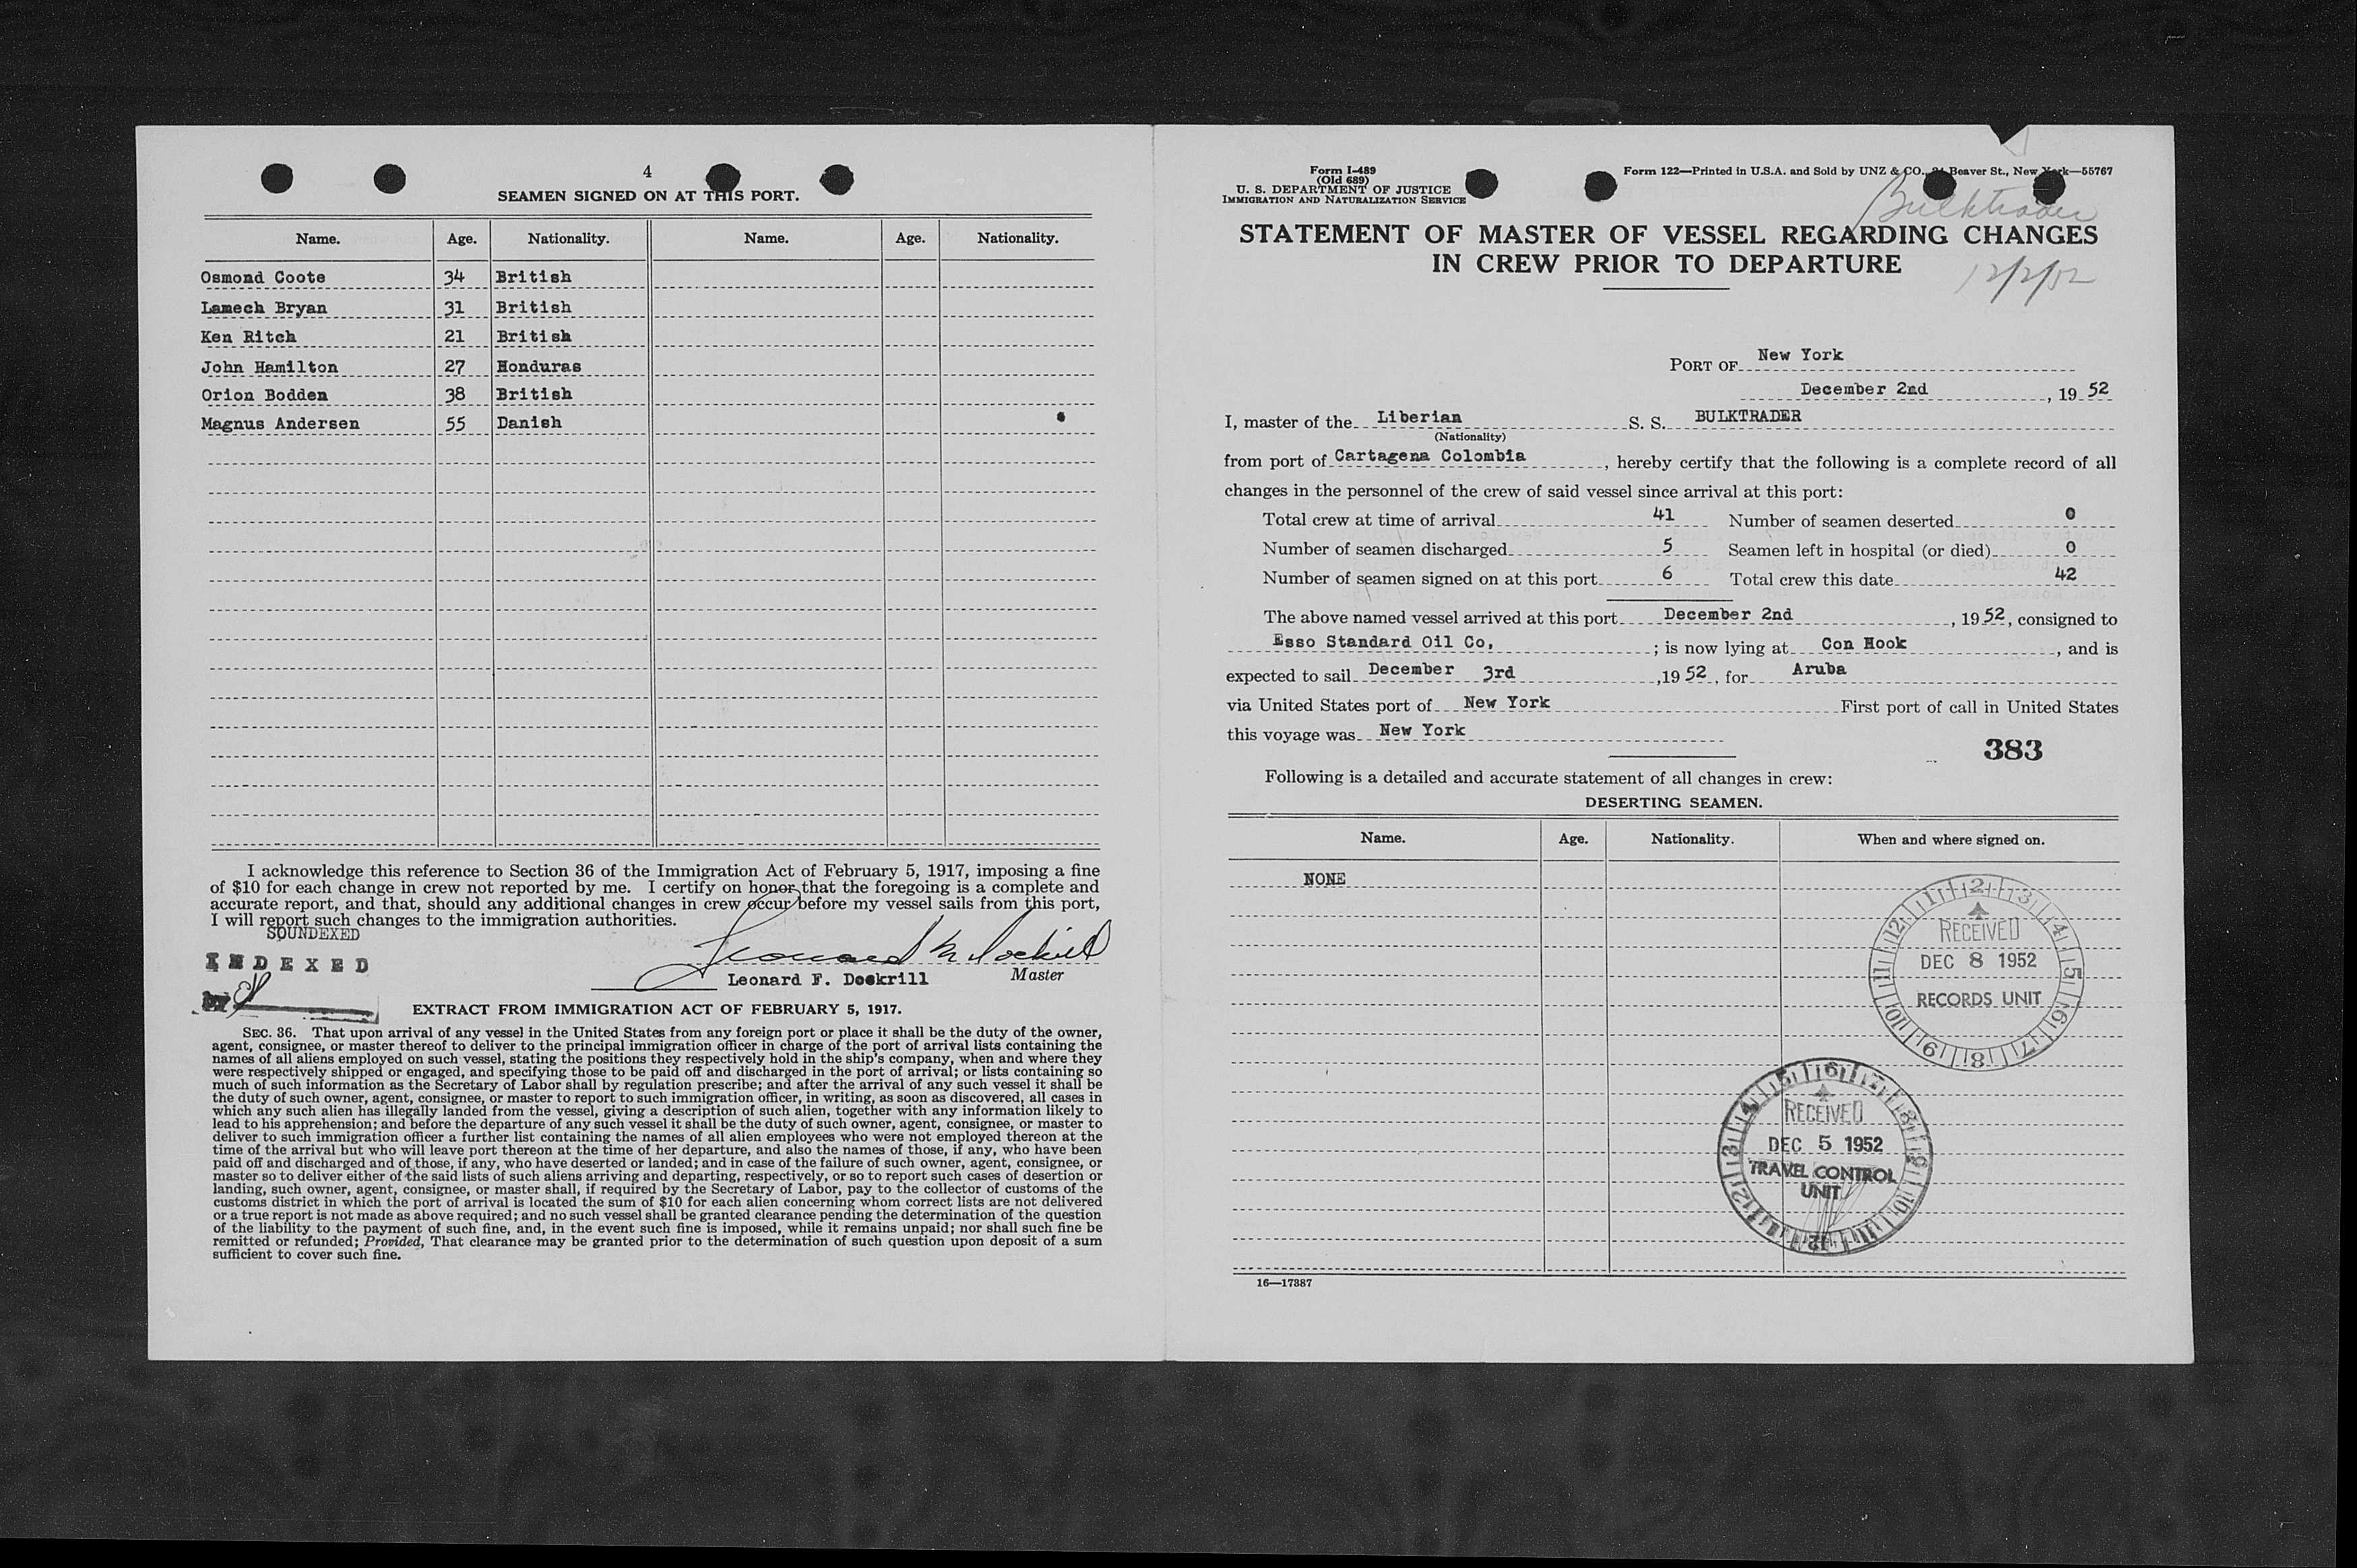 4
SEAMEN SIGNED ON AT THIS PORT.
Name. Age. Nationality. Name. Age. Nationality.
Osmond Coote 34 British
Lamech Bryan 31 British
Ken Ritch 21 British
John Hamilton 27 Honduras
Orion Bodden 38 British
Magnus Andersen 55 Danish
I acknowledge this reference to Section 36 of the Immigration Act of February 5, 1917, imposing a fine
of $10 for each change in crew not reported by me. I certify on honor that the foregoing is a complete and
accurate report, and that, should any additional changes in crew occur before my vessel sails from this port,
I will report such changes to the immigration authorities.
SOUNDEXED
INDEXED
by
Leonard F. Dockrill Master
EXTRACT FROM IMMIGRATION ACT OF FEBRUARY 5, 1917.
SEC. 36. That upon arrival of any vessel in the United States from any foreign port or place it shall be the duty of the owner,
agent, consignee, or master thereof to deliver to the principal immigration officer in charge of the port of arrival lists containing the
names of all aliens employed on such vessel, stating the positions they respectively hold in the ship's company, when and where they
were respectively shipped or engaged, and specifying those to be paid off and discharged in the port of arrival; or lists containing so
much of such information as the Secretary of Labor shall by regulation prescribe; and after the arrival of any such vessel it shall be
the duty of such owner, agent, consignee, or master to report to such immigration officer, in writing, as soon as discovered, all cases in
which any such alien has illegally landed from the vessel, giving a description of such alien, together with any information likely to
lead to his apprehension; and before the departure of any such vessel it shall be the duty of such owner, agent, consignee, or master to
deliver to such immigration officer a further list containing the names of all alien employees who were not employed thereon at the
time of the arrival but who will leave port thereon at the time of her departure, and also the names of those, if any, who have been
paid off and discharged and of those, if any, who have deserted or landed; and in case of the failure of such owner, agent, consignee, or
master so to deliver either of the said lists of such aliens arriving and departing, respectively, or so to report such cases of desertion or
landing, such owner, agent, consignee, or master shall, if required by the Secretary of Labor, pay to the collector of customs of the
customs district in which the port of arrival is located the sum of $10 for each alien concerning whom correct lists are not delivered
or a true report is not made as above required; and no such vessel shall be granted clearance pending the determination of the question
of the liability to the payment of such fine, and, in the event such fine is imposed, while it remains unpaid; nor shall such fine be
remitted or refunded; Provided, That clearance may be granted prior to the determination of such question upon deposit of a sum
sufficient to cover such fine.
Form I-489
(Old 689)
U. S. DEPARTMENT OF JUSTICE
IMMIGRATION AND NATURALIZATION SERVICE
Form 122—Printed in U.S.A. and Sold by UNZ & CO., Beaver St., New York—55767
Bulktrader
STATEMENT OF MASTER OF VESSEL REGARDING CHANGES
IN CREW PRIOR TO DEPARTURE
12/2/52
PORT OF New York
December 2nd, 1952
I, master of the Liberian S. S. BULKTRADER
(Nationality)
from port of Cartagena Colombia, hereby certify that the following is a complete record of all
changes in the personnel of the crew of said vessel since arrival at this port:
Total crew at time of arrival 41 Number of seamen deserted 0
Number of seamen discharged 5 Seamen left in hospital (or died) 0
Number of seamen signed on at this port 6 Total crew this date 42
The above named vessel arrived at this port December 2nd, 1952, consigned to
Esso Standard Oil Co, ; is now lying at Con Hook, and is
expected to sail December 3rd ,1952, for Aruba
via United States port of New York First port of call in United States
this voyage was New York
383
Following is a detailed and accurate statement of all changes in crew:
DESERTING SEAMEN.
Name. Age. Nationality. When and where signed on.
NONE
RECEIVED
DEC 8 1952
RECORDS UNIT
RECEIVED
DEC 5 1952
TRAVEL CONTROL
UNIT
16—17387